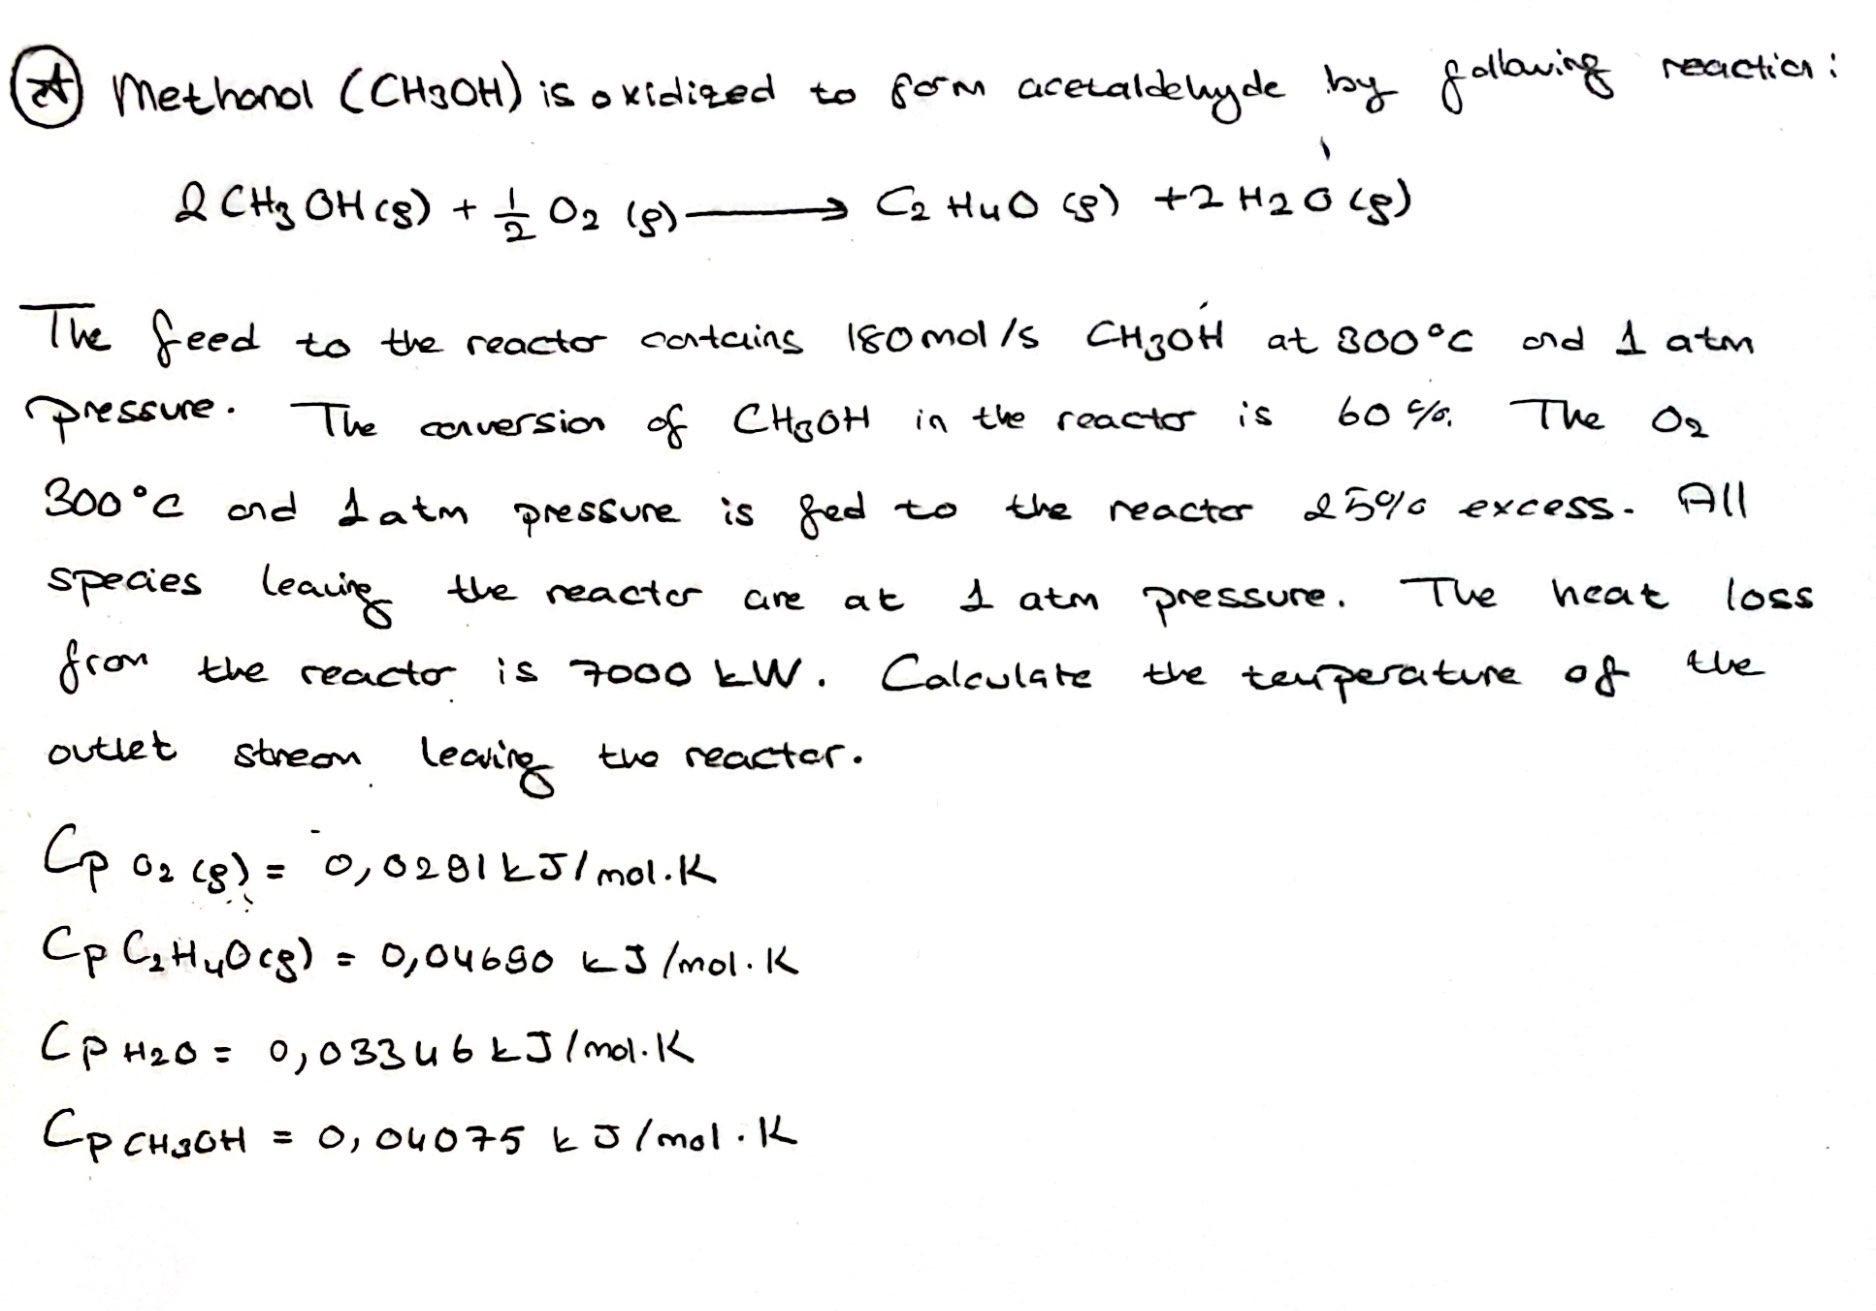 Methanol (CH3OH) is oxidized to form acetaldehyde by following reaction:
2 CH3OH (g) + 1/2 O2 (g) → C2H4O (g) + 2 H2O (g)
The feed to the reactor contains 180 mol/s CH3OH at 300°C and 1 atm
pressure. The conversion of CH3OH in the reactor is 60%. The O2
300°C and 1 atm pressure is fed to the reactor 25% excess. All
species leaving the reactor are at 1 atm pressure. The heat loss
from the reactor is 7000 kW. Calculate the temperature of the
outlet stream leaving the reactor.
Cp O2 (g) = 0,0291 kJ/mol.K
Cp C2H4O(g) = 0,04690 kJ/mol.K
Cp H2O = 0,03346 kJ/mol.K
Cp CH3OH = 0,04075 kJ/mol.K